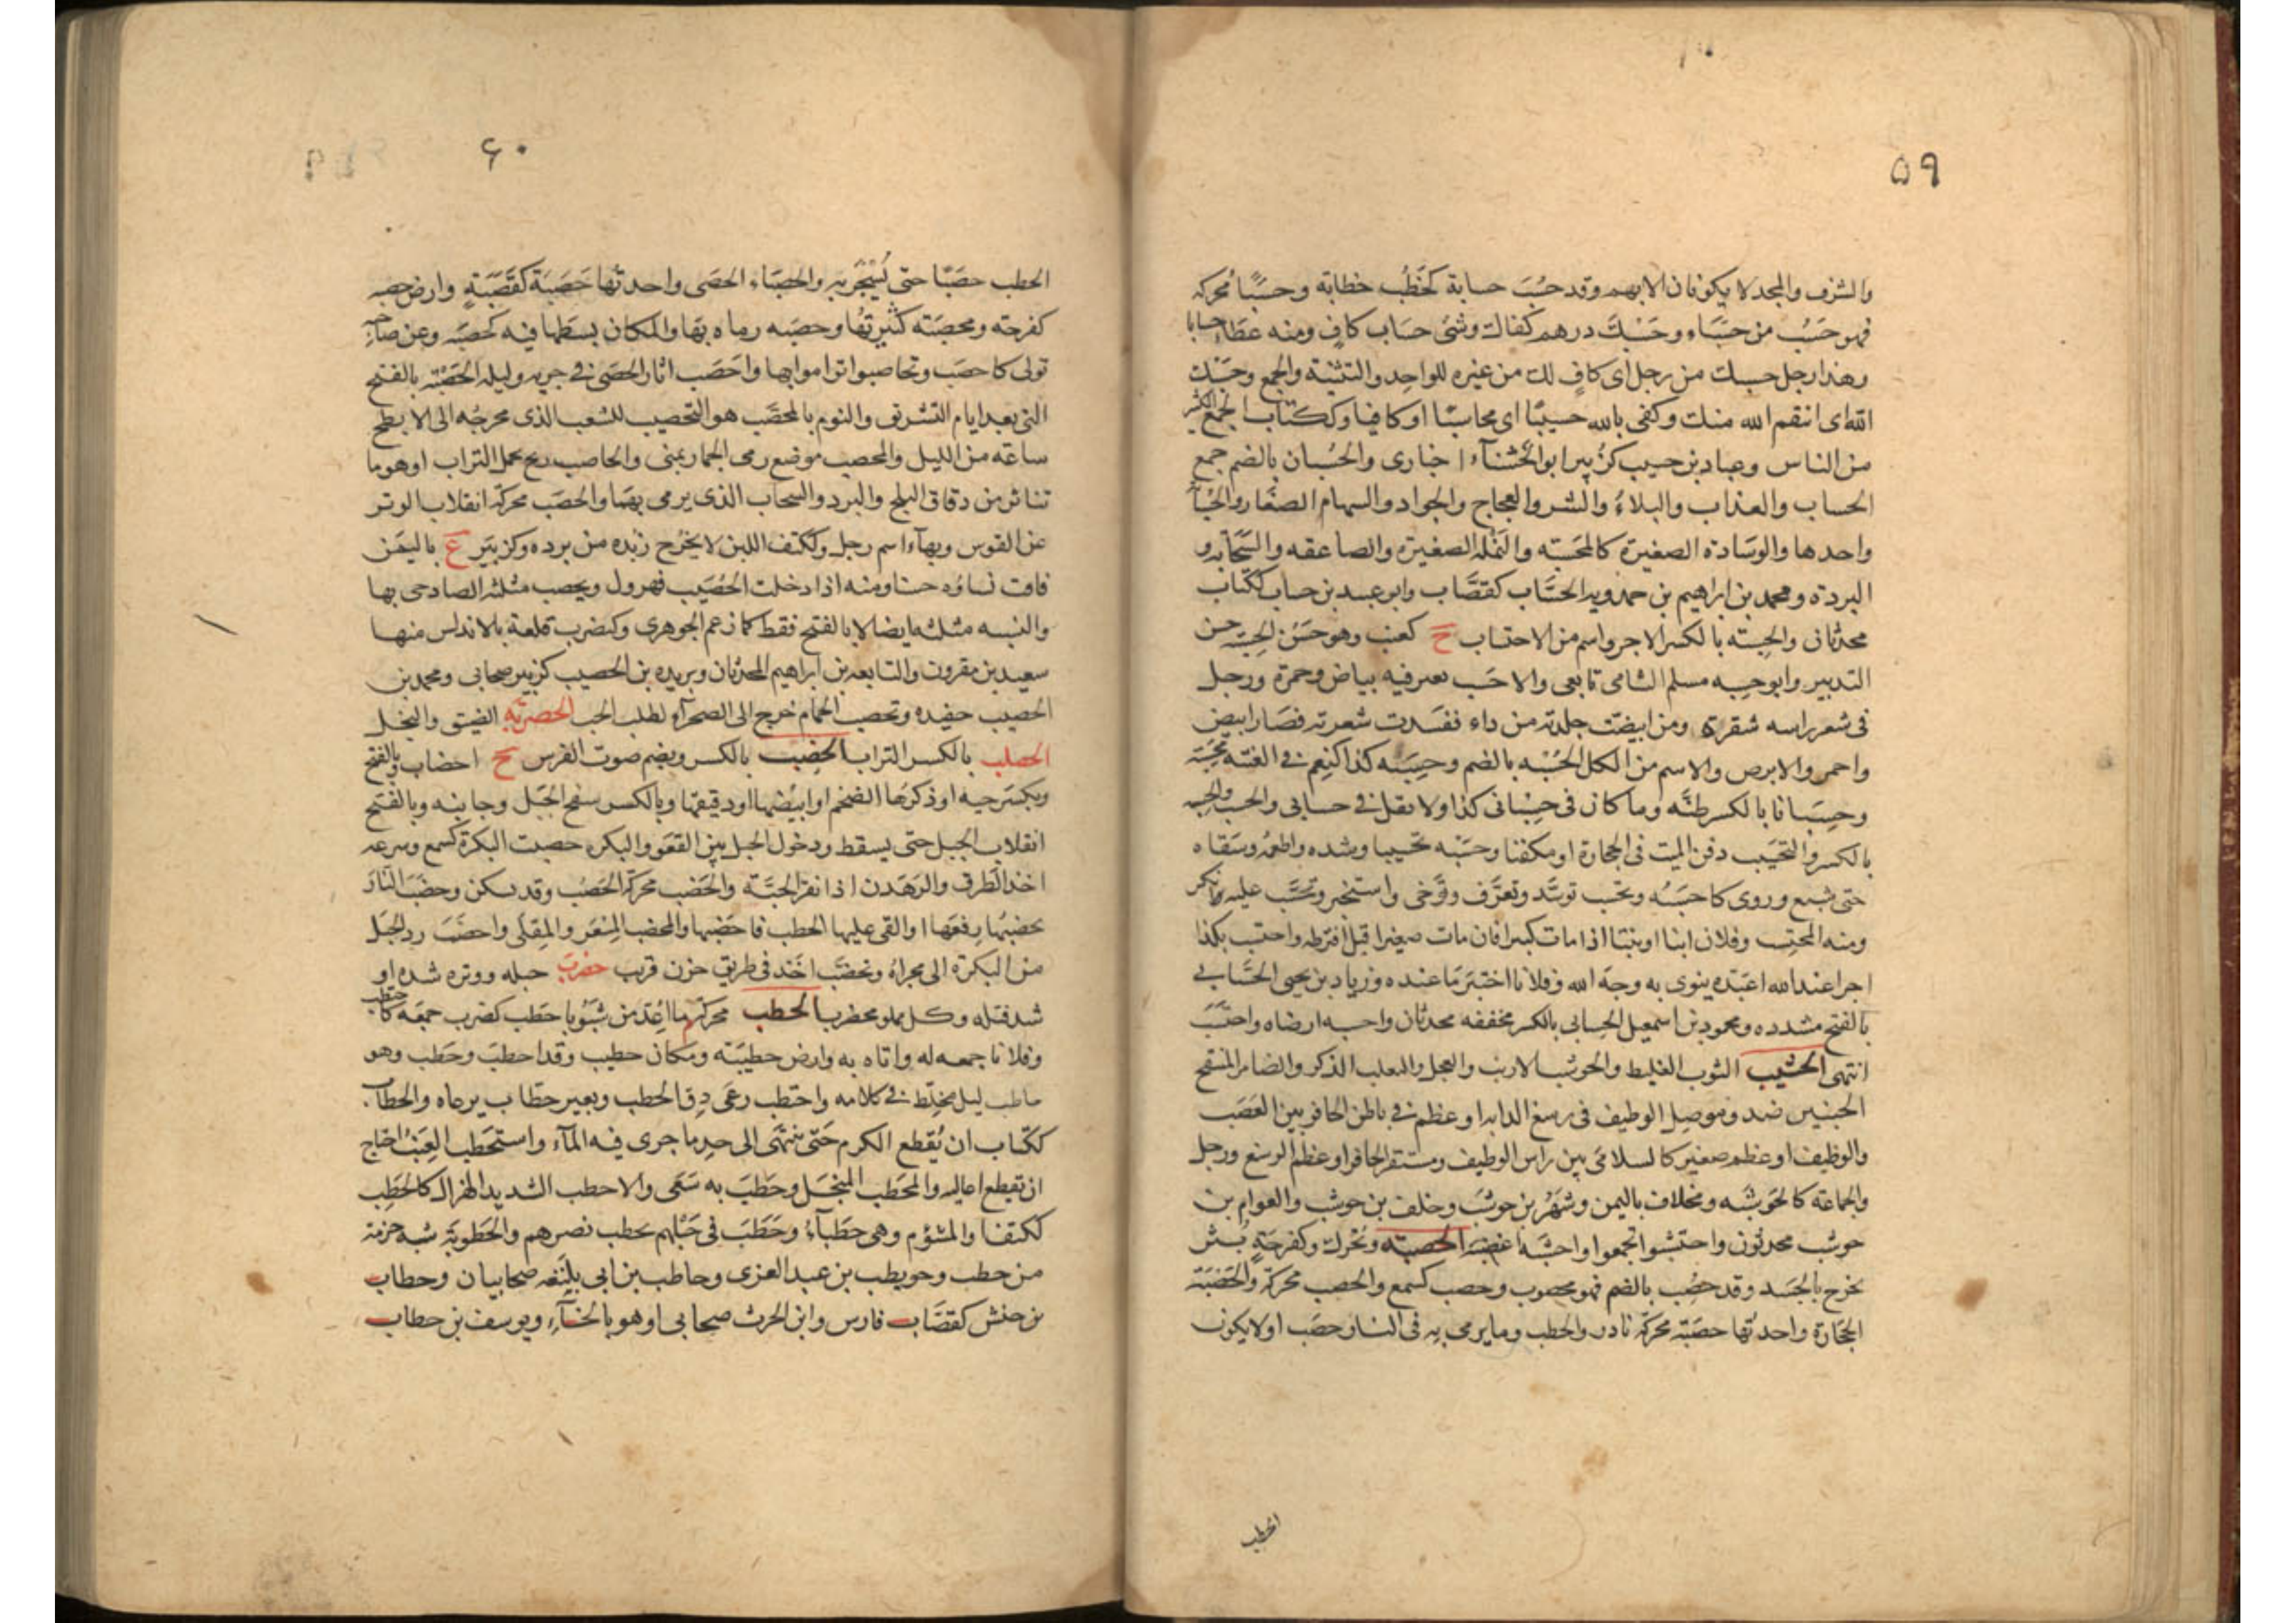 ٥٩
والشرف والمجد لا يكونان الا بهم وقد حسُبَ حسابة كخَطُب خطابة وحسَبًا مُحركه
فهو حَسيب من حسَبَاء وحَسْبُكَ درهم كفاك وشئ حسَاب كافٍ ومنه عطاءً حسابا
وهذا رجل حسبك من رجل اى كافٍ لك من غيره للواحد والتثنية والجمع وحسيبك
الله اى انتقم الله منك وكفى بالله حسيبًا اى محاسبًا او كافيا وككتاب الجمع الكثير
من الناس وعباد بن حسيب كزُبير ابو الخشناء اخبارى والحُسبان بالضم جمع
الحساب والعذاب والبلاءُ والشر والعجاج والجراد والسهام الصغار والحُسْبانة
واحدها والوسَادة الصغيرة كالمحسَبة والنَمْلة الصغيرة والصاعقه والسَّحابة و
البردة ومحمد بن ابراهيم بن حمدويه الحسَّاب كقصَّاب وابو عبيد بن حساب ككتاب
محدثان والحِسبَة بالكسر الاجر واسم من الاحتساب ح كعنب وهو حَسَن الحِسبة حسن
التدبير وابو حسبه مسلم الشامى تابعى والاحسَب بعير فيه بياض وحمرة ورجل
فى شعر راسه شقرة ومن ابيضّت جلدته من داء ففسَدت شعرته فصَار ابيض
واحمر والابرص والاسم من الكل الحُسْبَة بالضم وحسِبَه كذا كنَعِم فى الغته محسَبة
وحِسبَانا بالكسر ظنَّه وما كان فى حِسْبانى كذا ولا تقل فى حسابى والحسب والحِسبة
بالكسر والتحسَيب دفن الميت فى الحجارة او مكفنا وحسَّبه تحسيبا وسّده واطعمهُ وسَقاه
حتى شبع وروى كاحسَبَهُ وتحسّب توسَّد وتعرَّف وتوَّخى واستخبر واحتسَب عليه انكر
ومنه المحتسِب وفلان ابنا او بنتا اذا مات كبيرا فان مات صغيرا قيل افترطه واحتسَب بكذا
اجرا عند الله اعتدّه ينوى به وجهَ الله وفلانا اختبَرَ مَا عنده وزياد بن يحيى الحسَّابى
بالفتح مشدده ومحمود بن اسمعيل الحِسابى بالكسر مخففه محدثان واحسبه ارضاه واحتسَب
انتهى الحشيب الثوب الغليظ والحوشب الارنب والعجل والثعلب الذكر والضامر المنتفخ
الجنبين ضد وموصل الوظيف فى رسغ الدابه او عظم فى باطن الحافر بين العَصَب
والوظيف او عظم صغير كالسلامَى بين راس الوظيف ومستقر الحافر او عظم الرسغ ورجل
والجماعة كالحَوشبَة ومخلاف باليمن وشهر بن حوشب وخلف بن حوشب والعوام بن
حوشب محدثون واحتشبوا تجمعوا واحشبَه اغضبه الحصبة وتُحرك وكفرحَةٍ بَثر
يخرج بالجسَد وقد حصُب بالضم فهو محصوب وحصب كسمع والحصب محركة والحَصْبَة
الحجَارة واحدتُها حصَبَة محركة نادر والحطب وما يرمى به فى النار حصَب او لا يكون
الحطب
٦٠
الحطب حصَبًا حتى يُسْجَر به والحصبَاء الحصَى واحدتُها حَصَبَة كقَصَبَةٍ وارض حصبة
كفرحَة ومحصَبَة كثيرتُها وحصَبه رماه بهَا والمكان بسَطها فيه كحصّبه وعن صاحبه
تولى كاحصَب وتحاصبوا تراموا بها واحصَب اثار الحصَى فى جريه وليلة الحَصْبَة بالفتح
التى بعد ايام التشريق والنوم بالمحصَّب هو التحصيب للشعب الذى مخرجُه الى الابطح
ساعَة من الليل والمحصب موضع رمى الجمار بمنى والحاصب ريح تحمل التراب او هو ما
تناثر من دقاق الثلج والبرد والسحاب الذى يرمى بهمَا والحصَب محركة انقلاب الوتر
عن القوس وبهاءٍ اسم رجل وككَتف اللبن لا يخرُج زبده من برده وكزبَير ع باليمَن
فاقت نساؤه حسنا ومنه اذا دخلت الحُصَيب فهرول ويحصب مثلثه الصاد حى بها
والنسبه مثلثه ايضا لا بالفتح فقط كما زعم الجوهرى وكيضرب قلعة بالاندلس منها
سعيد بن مقرون والنابغه بن ابراهيم المحدثان وبريده بن الحصيب كزبير صحابى ومحمد بن
الحصيب حفيده وتحصب الحمام خرج الى الصحراء لطلب الحب الحصربة الضيق والبخل
الحصلب بالكسر التراب الحِضْب بالكسر ويضم صوت القوس ج احضاب وبالفتح
ويكسَر حيه او ذكرهَا الضخم او ابيَضها او دقيقهَا وبالكسر سفح الجبَل وجانبه وبالفتح
انقلاب الحبل حتى يسقط ودخول الحبل بين القعو والبكره حضبت البكرة كسمع وسرعه
اخذ الطَرق والرَهْدن اذا نقر الحبَّة والحَضَب محركة الحَصَب وقد يسكن وحضَبَ النَّارَ
يحضبُها رفعَها او القى عليها الحطب فاحضَبها والمحضب المِسْعَر والمِقلَى واحضَبَ رد الحَبل
من البكرَة الى مجراهُ وتحضَبَ اخَذ فى طريق حزن قريب حضرب حبله ووتره شده او
شد فتله وكل مملو محضرب الحطب محركة ما اعُدَّ من شبُوبا حَطَب كضرب جمعَه كاحتطب
وفلانا جمعه له واتاه به وارض حطيبَة ومكان حطيب وقد احطبَ وحَطِب وهو
حاطب ليل مخلِّط فى كلامه واحتطب رعَى دِق الحطب وبعير حطَّاب يرعاه والحطاب
ككتاب ان يُقطع الكرم حَتى ينتهَى الى حد ما جرى فيه الماَء واستحَطب العِنَبُ احتاج
ان تقطع اعاليه والمحْطَب المِنجَل وحطَبَ به سَعَى والاحطب الشديد الهزال كالحَطِب
ككتف او المشؤم وهى حطباَءُ وحَطَبَ فى حَبْلهم يحطب نصرهم والحَطوبَة شبه حزمة
من حطب وحويطب بن عبد العزى وحاطب بن ابى بلتَعه صحابيان وحطاب
بن حنش كقصَّاب فارس وابن الحرث صحابى او هو بالخاَء ويوسف بن حطاب